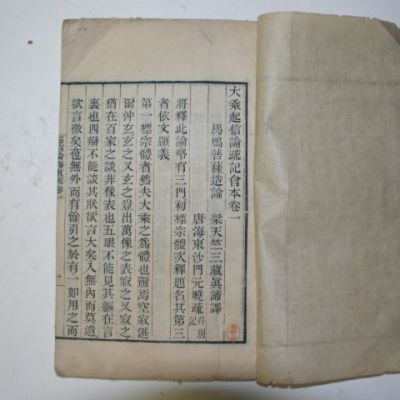 大乘起信論疏記會本卷一
馬鳴菩薩造論　梁天竺三藏眞諦譯
唐海東沙門元曉疏并別記
將釋此論略有三門初標宗體次釋題名其第三
者依文顯義
第一標宗體者然夫大乘之爲體也蕭焉空寂湛
爾沖玄玄之又玄之豈出萬像之表寂之又寂之
猶在百家之談非像表也五眼不能見其軀在言
裏也四辯不能談其狀欲言大矣入無內而莫遺
欲言微矣苞無外而有餘引之於有一如用之而